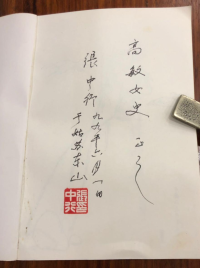 高敏女史 正之
張中行
九九年六月一日
于姑苏东山
張中行